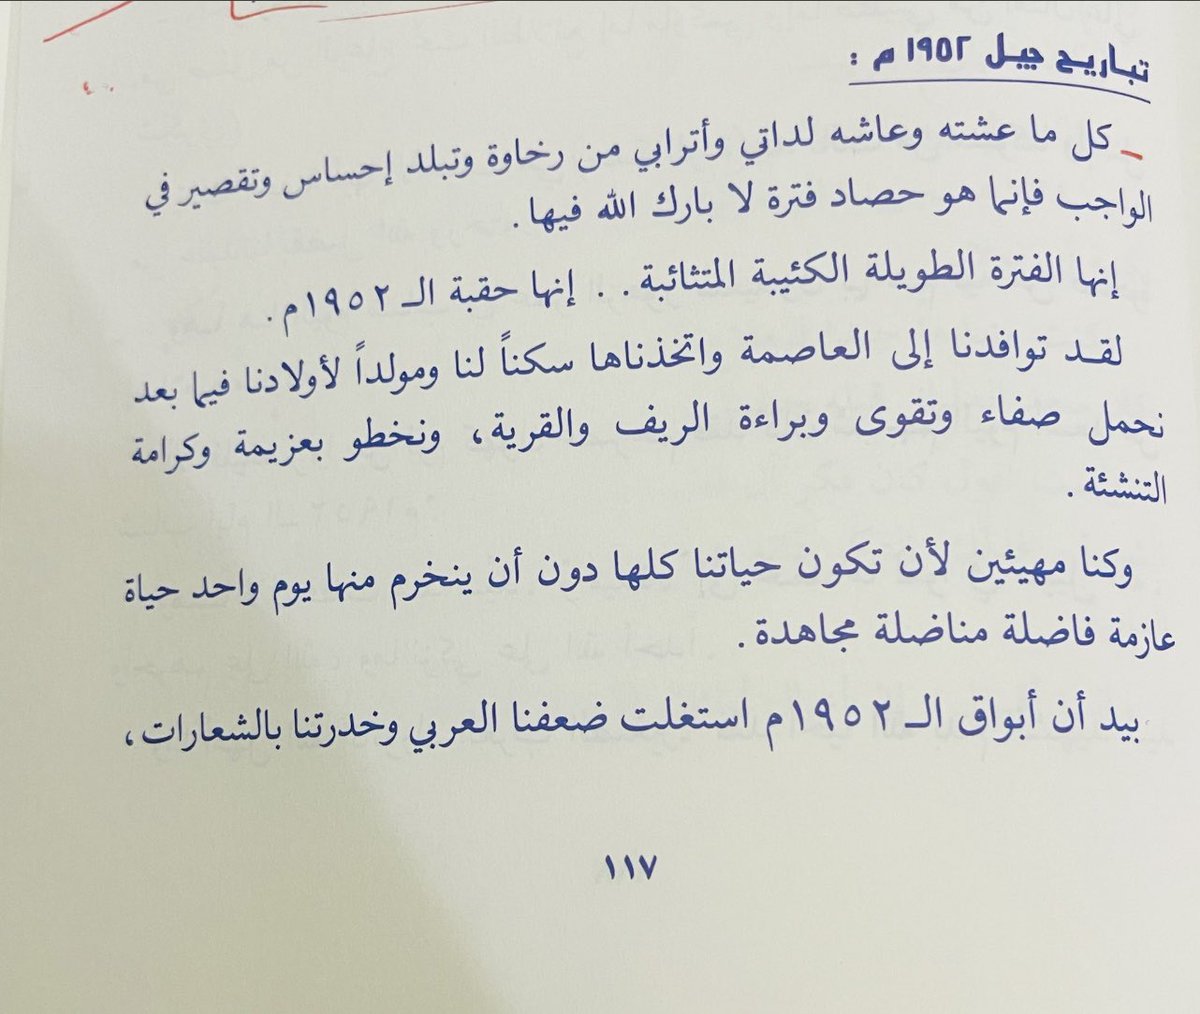 تباريح جيل ١٩٥٢ م :
كل ما عشته وعاشه لداتي وأترابي من رخاوة وتبلد إحساس وتقصير في
الواجب فإنما هو حصاد فترة لا بارك الله فيها .
إنها الفترة الطويلة الكئيبة المتثائبة . . إنها حقبة الـ ١٩٥٢م .
لقـد توافدنا إلى العاصمة واتخذناها سكناً لنا ومولداً لأولادنا فيما بعد
نحمل صفاء وتقوى وبراءة الريف والقرية، ونخطو بعزيمة وكرامة
التنشئة .
وكنا مهيئين لأن تكون حياتنا كلها دون أن ينخرم منها يوم واحد حياة
عازمة فاضلة مناضلة مجاهدة .
بيد أن أبواق الـ ١٩٥٢م استغلت ضعفنا العربي وخدرتنا بالشعارات،
١١٧